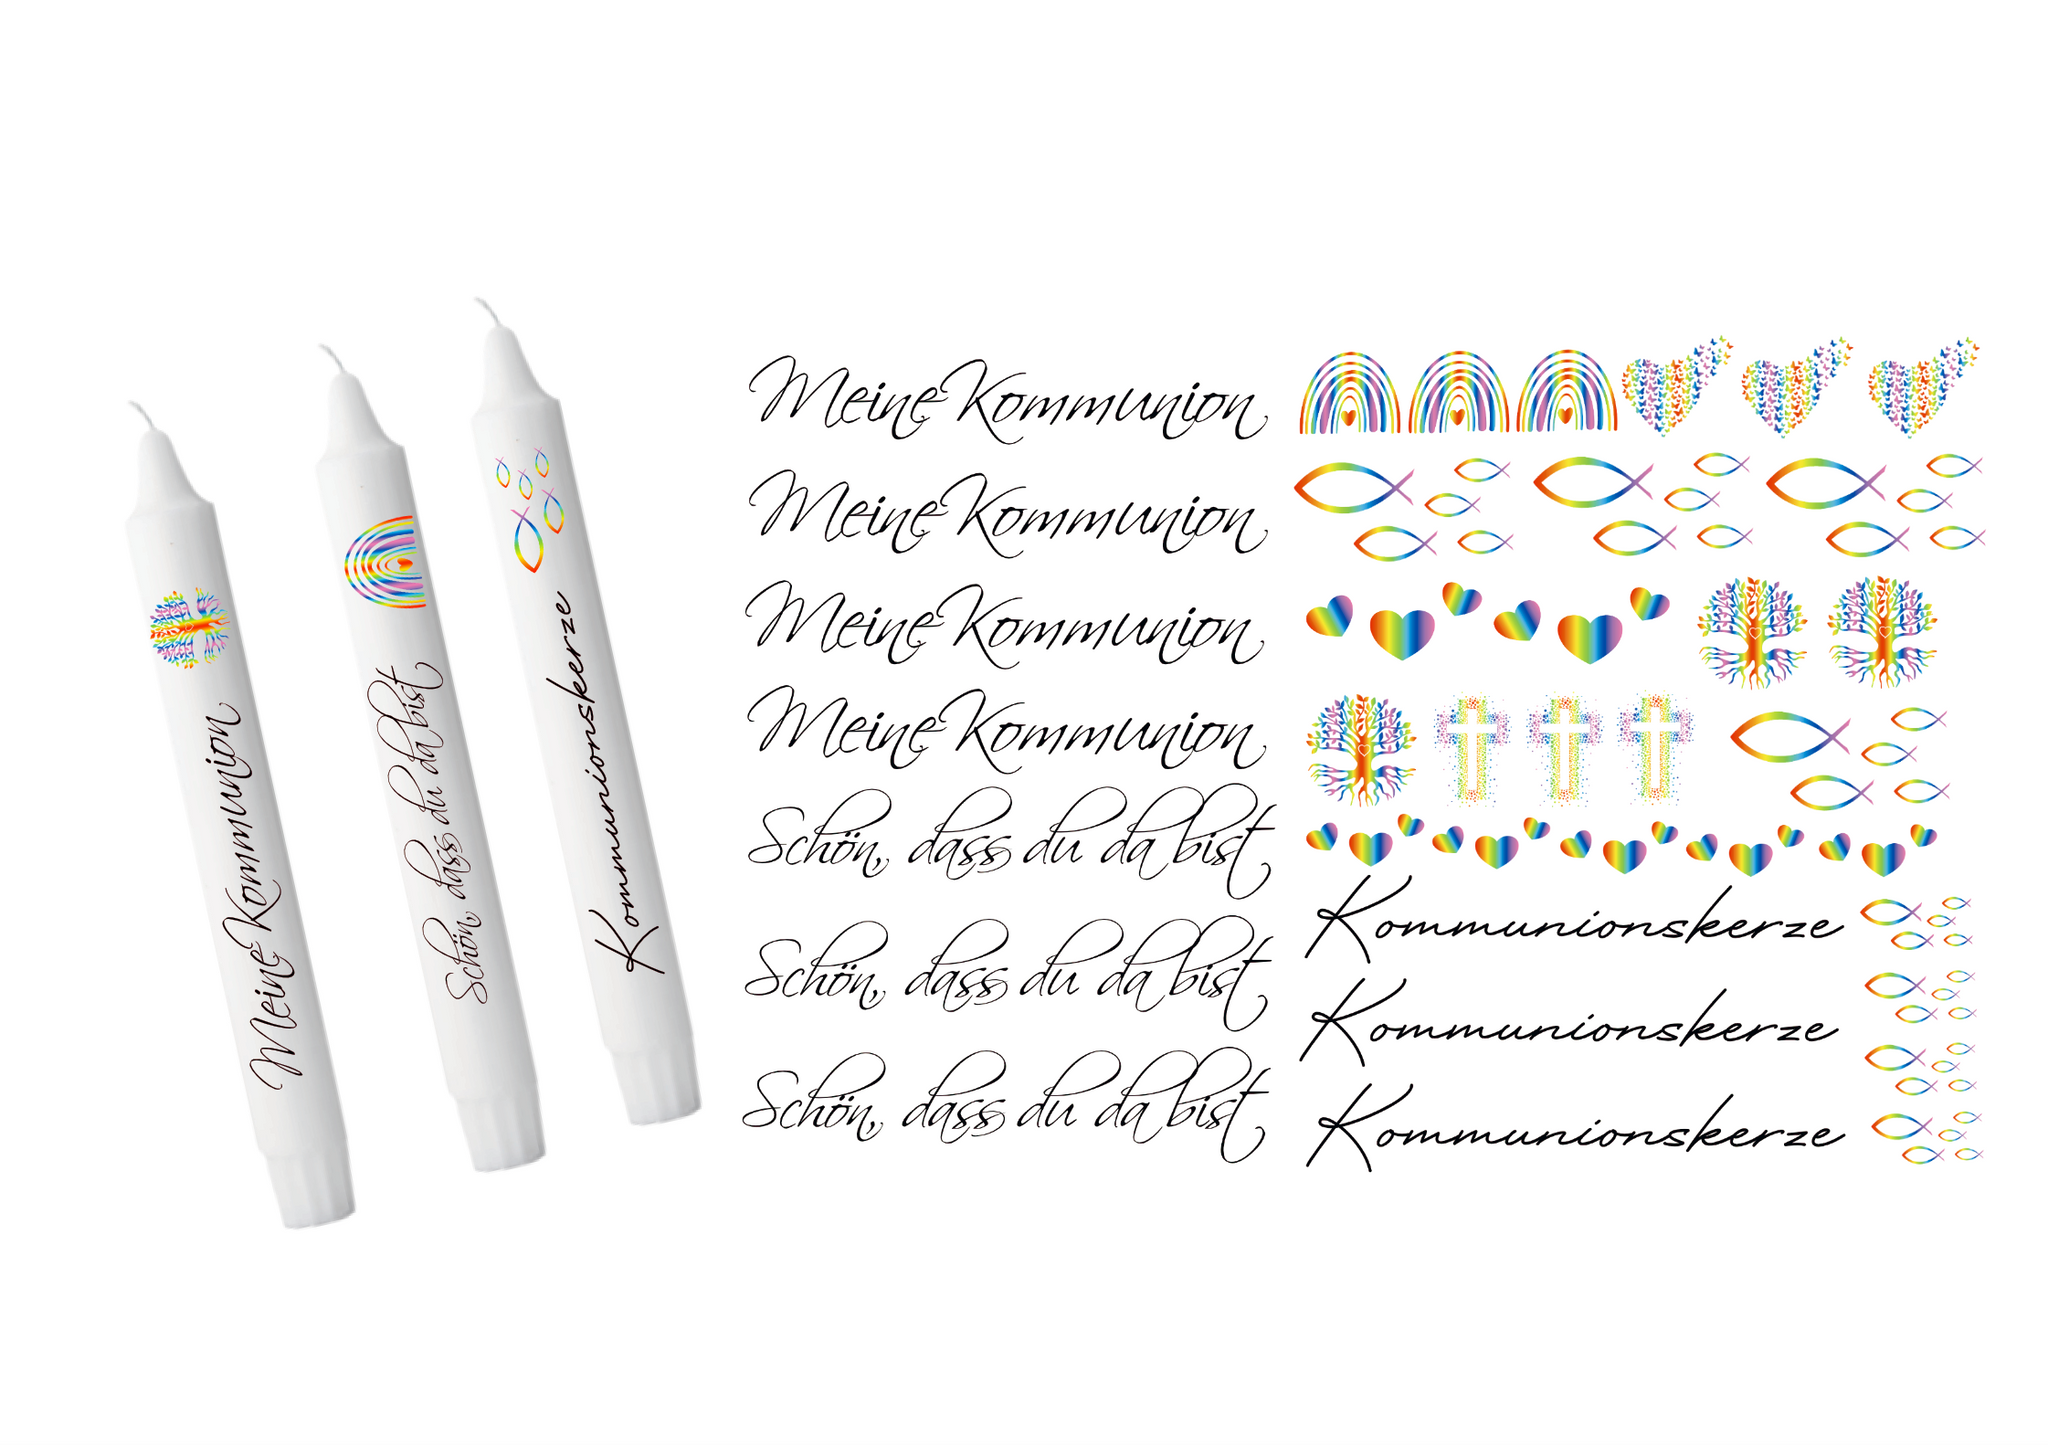 Meine Kommunion
Schön, dass du da bist
Kommunionskerze
Meine Kommunion
Meine Kommunion
Meine Kommunion
Meine Kommunion
Schön, dass du da bist
Schön, dass du da bist
Schön, dass du da bist
Kommunionskerze
Kommunionskerze
Kommunionskerze